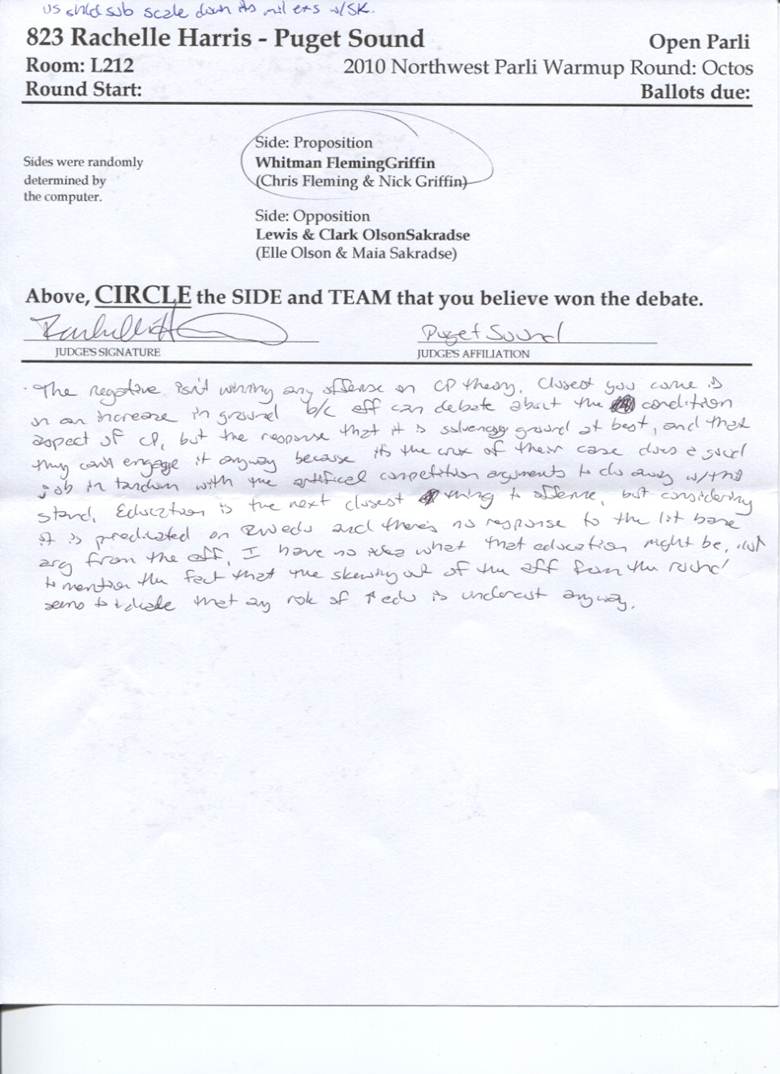 US shld sub scale down its mil exs w/SK.
823 Rachelle Harris - Puget Sound Open Parli
Room: L212 2010 Northwest Parli Warmup Round: Octos
Round Start: Ballots due:
Side: Proposition
Sides were randomly Whitman FlemingGriffin
determined by (Chris Fleming & Nick Griffin)
the computer.
Side: Opposition
Lewis & Clark OlsonSakradse
(Elle Olson & Maia Sakradse)
Above, CIRCLE the SIDE and TEAM that you believe won the debate.
Puget Sound
JUDGE'S SIGNATURE JUDGE'S AFFILIATION
· The negative isn't winning any offense on CP theory. Closest you come is
in an increase in ground b/c aff can debate about the condition
aspect of CP, but the response that it is solvency ground at best, and that
they can't engage it anyway because it's the crux of their case does a good
job in tandem with the artificial competition arguments to do away w/this
stand. Education is the next closest thing to offense, but considering
it is predicated on RW edu and there's no response to the lit base
arg from the aff, I have no idea what that education might be, not
to mention the fact that the skewing out of the aff from the round
seems to indicate that any risk of ↑ edu is undercut anyway.